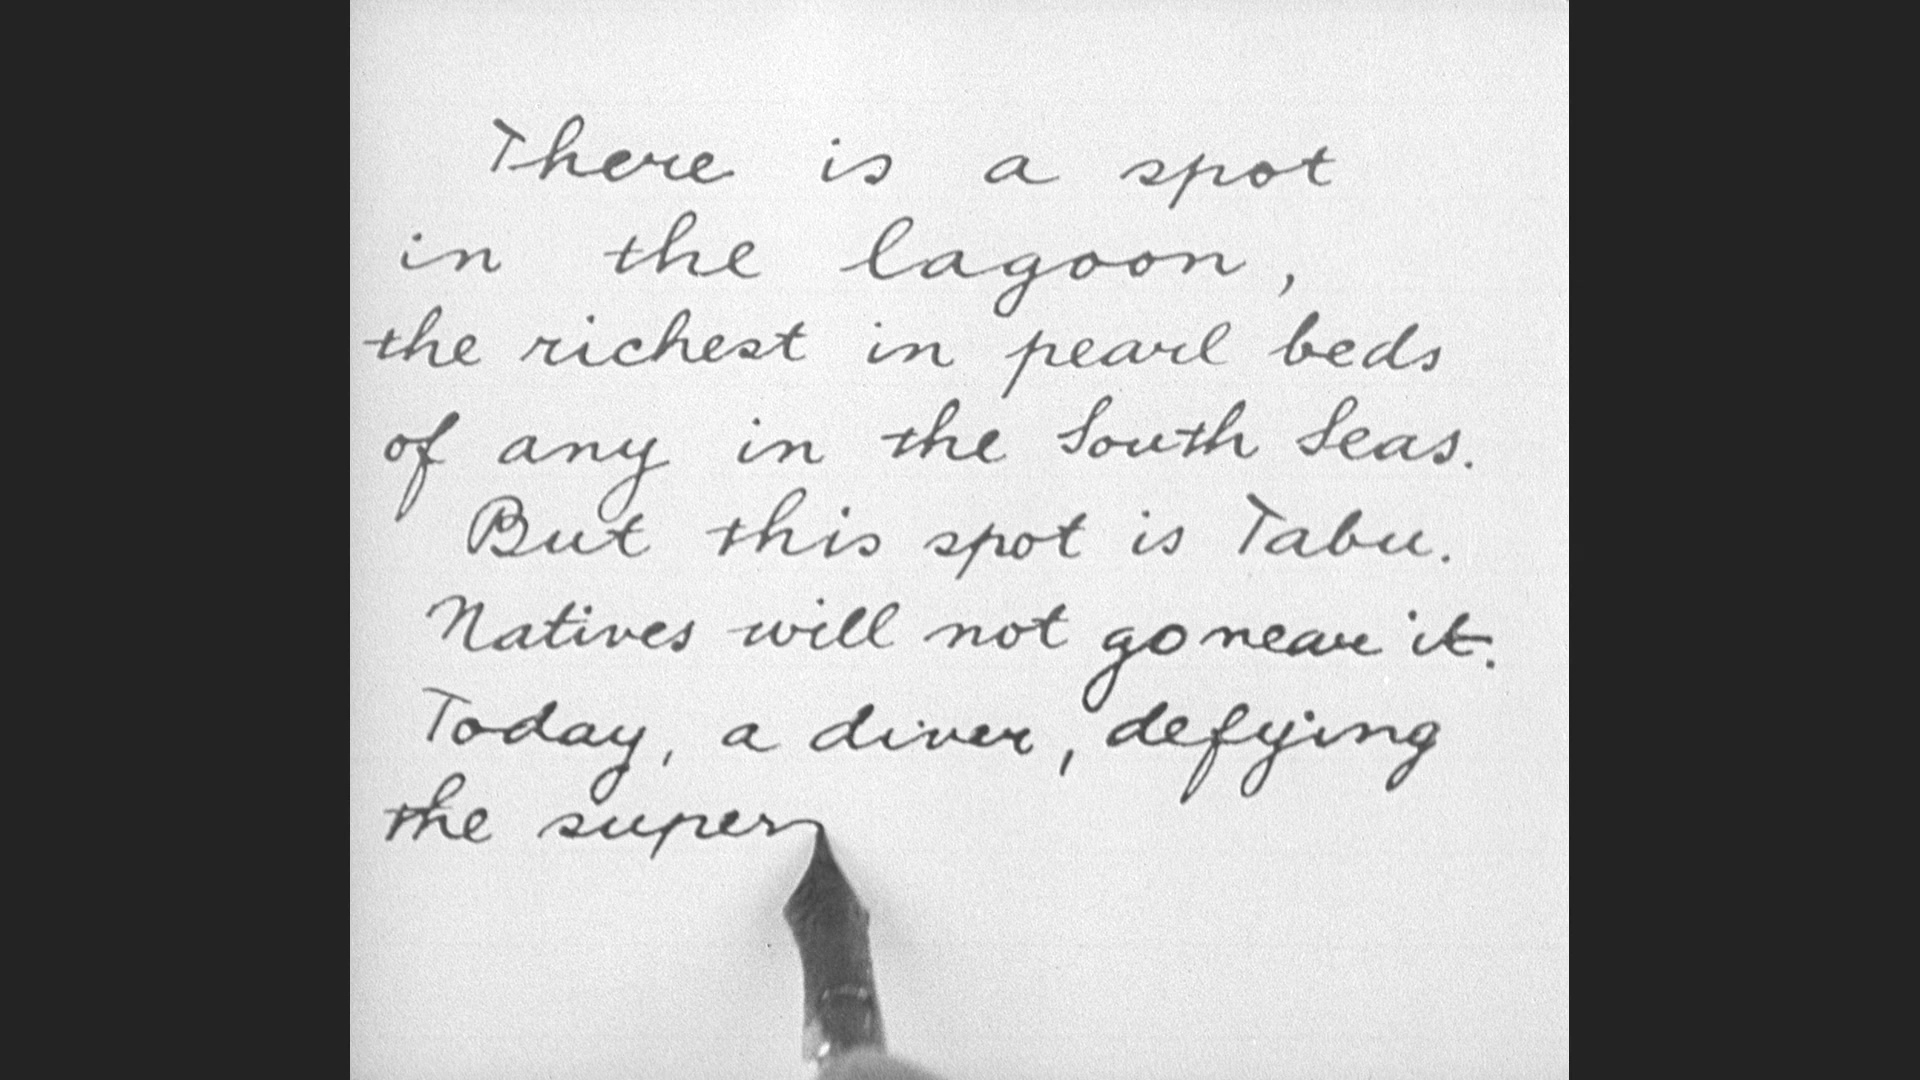 There is a spot
in the lagoon,
the richest in pearl beds
of any in the South Seas.
But this spot is Tabu.
Natives will not go near it.
Today, a diver, defying
the super